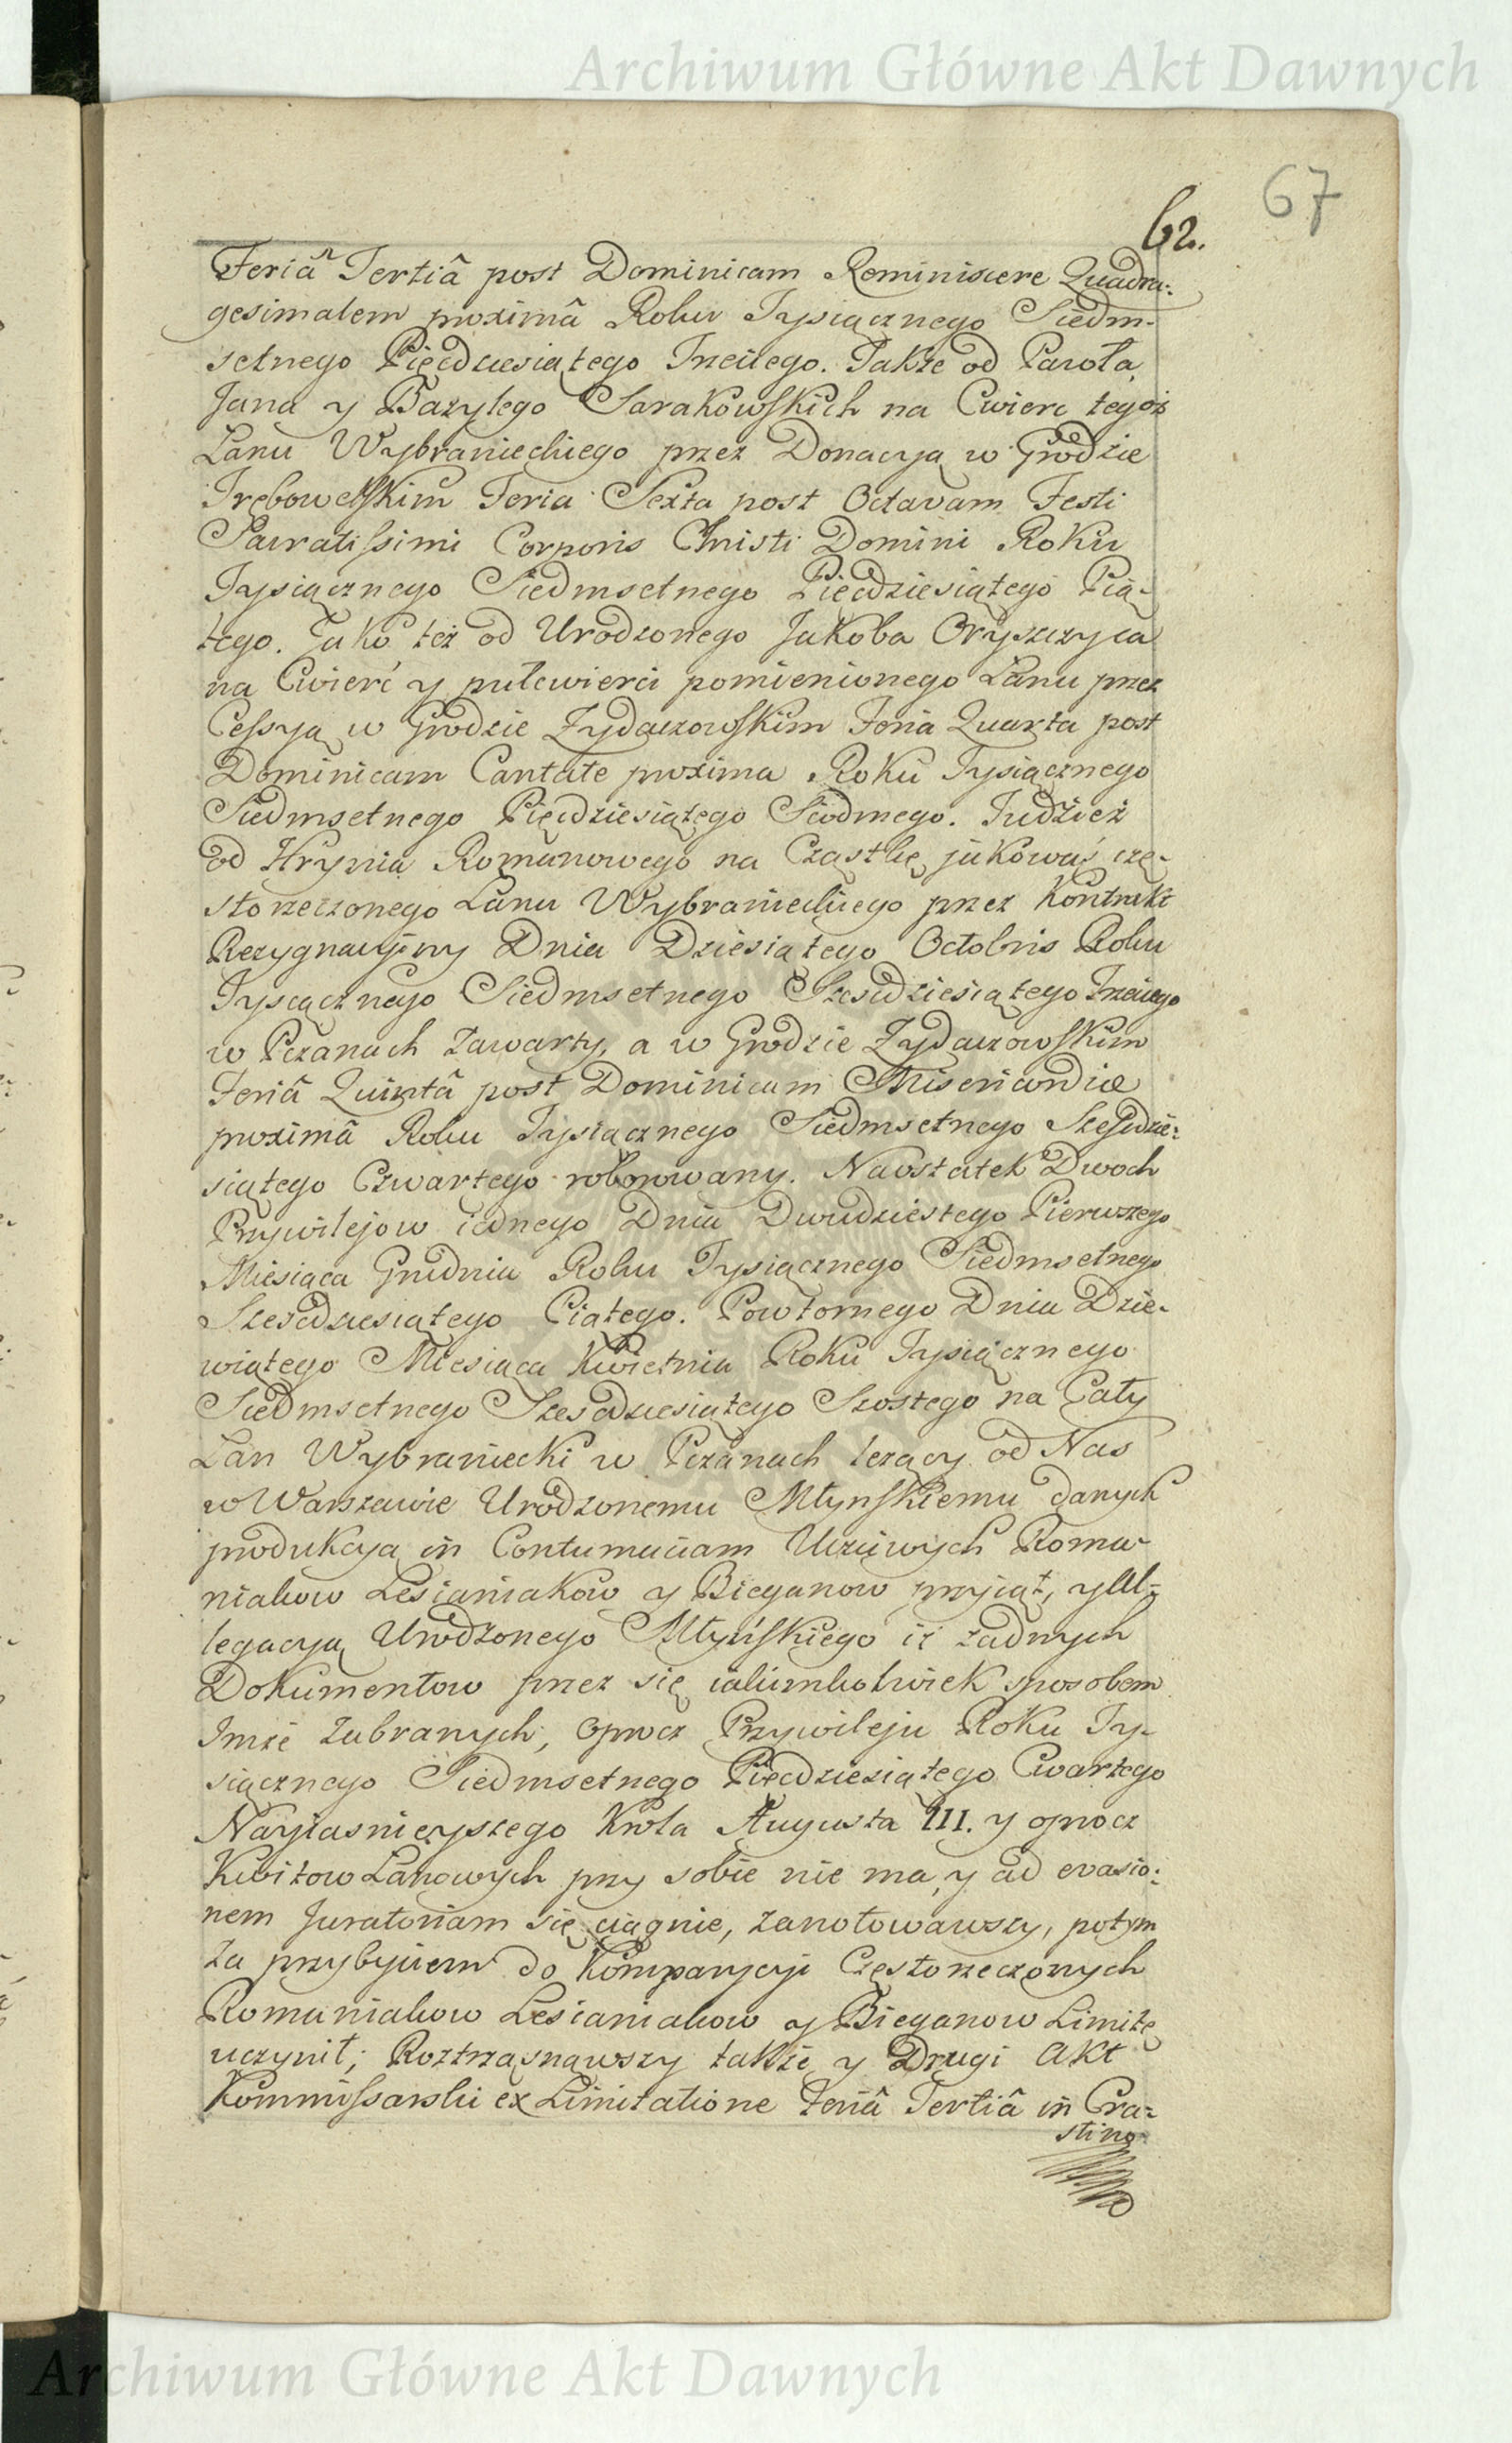 Archiwum Główne Akt Dawnych
67
62.
Feriâ Tertiâ post Dominicam Reminiscere Quadra:
gesimalem proximâ Roku Tysiącznego Siedm-
setnego Pięcdziesiątego Trzeciego. Także od Pawła,
Jana y Bazylego Sarakowskich na Cwierc tegoż
Łanu Wybranieckiego przez Donacyą w Grodzie
Trębowelskim Feria Sexta post Octavam Festi
Sacratissimi Corporis Christi Domini Roku
Tysiącznego Siedmsetnego Pięcdziesiątego Pią-
tego. Jako też od Urodzonego Jakoba Oryszczyca
na Cwierć y pułcwierci pomienionego Łanu przez
Cessyą w Grodzie Zydaczowskim Feria Quarta post
Dominicam Cantate proxima Roku Tysiącznego
Siedmsetnego Pięcdziesiątego Siodmego. Tudzież
od Hrynia Romanowego na Cząstkę jakowąś czę-
sto rzeczonego Łanu Wybranieckiego przez Kontrakt
Rezygnacyiny Dnia Dziesiątego Octobris Roku
Tysiącznego Siedmsetnego Szescdziesiątego Trzeciego
w Pczanach zawarty, a w Grodzie Zydaczowskim
Feriâ Quintâ post Dominicam Misericordiæ
proximâ Roku Tysiącznego Siedmsetnego Szescdzie:
siątego Czwartego roborowany. Naostatek Dwoch
Przywilejow iednego Dnia Dwudziestego Pierwszego
Miesiąca Grudnia Roku Tysiącznego Siedmsetnego
Szescdziesiątego Piątego. Powtornego Dnia Dzie-
wiątego Miesiąca Kwietnia Roku Tysiącznego
Siedmsetnego Szescdziesiątego Szostego na Cały
Łan Wybraniecki w Pczanach leżący od Nas
w Warszawie Urodzonemu Młynskiemu danych
produkcyą in Contumaciam Uczciwych Roma-
niakow Lesianiakow y Bieganow przyiął, y Al-
legacyą Urodzonego Młyńskiego iż żadnych
Dokumentow przez się iakimkolwiek sposobem
Imże zabranych, oprocz Przywileju Roku Ty-
siącznego Siedmsetnego Pięcdziesiątego Cwartego
Nayiasnieyszego Krola Augusta III. y oprocz
Kwitow Łanowych przy sobie nie ma, y ad evasio:
nem Juratoriam się ciągnie, zanotowawszy, potym
za przybyciem do Komparycyi Częstorzeczonych
Romaniakow Lesianiakow y Bieganow Limitę
uczynił; Roztrząsnąwszy także y Drugi Akt
Kommissarski ex Limitatione Feriâ Tertiâ in Cra-
stino
Archiwum Główne Akt Dawnych